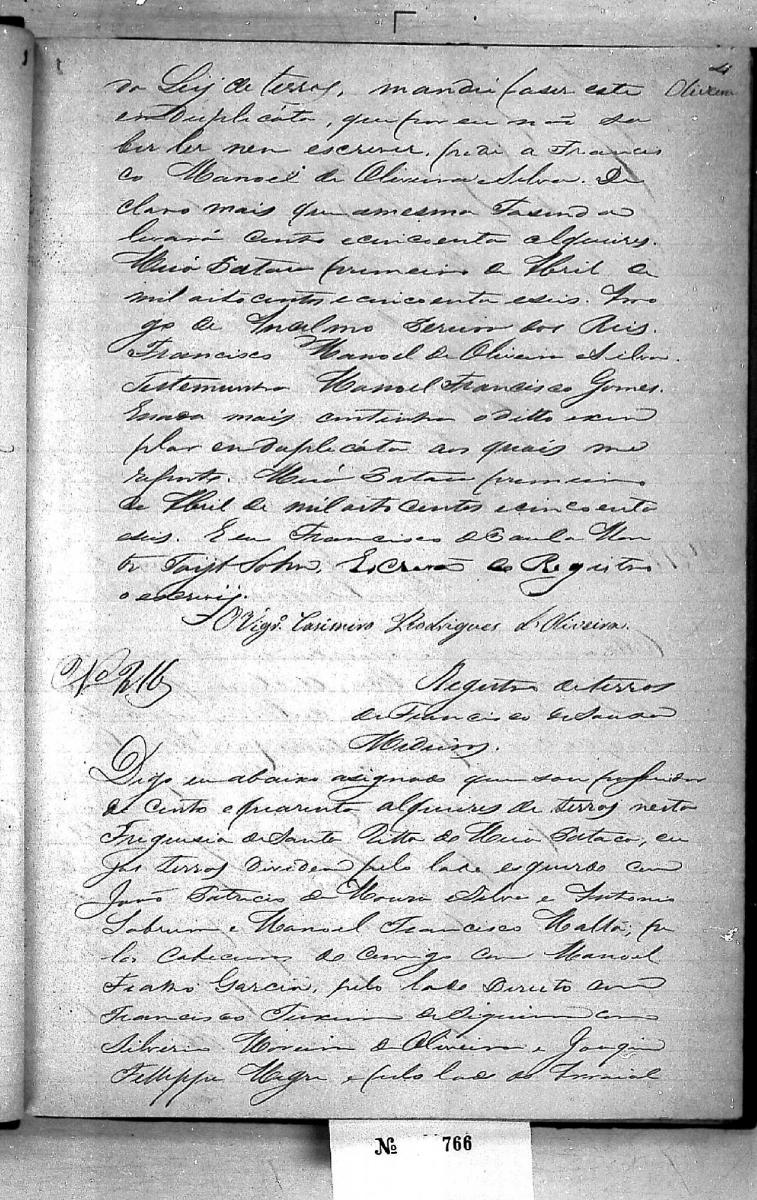 4
Oliveira
da Leij de terras, mandei faser este
em Duplicáta, que por eu não sa
ber ler nem escrever, pedi a Francis
co Manoel de Oliveira e Silva. De
claro mais que a mesma Fasenda
levará cento e cincoenta alqueires.
Meia Pataca primeiro de Abril de
mil oito centos e cincoenta e seis. Aro
go de Anselmo Pereira dos Reis.
Francisco Manoel de Oliveira e Silva.
Testemunha Manoel Francisco Gomes.
E nada mais continha o ditto exem
plar em duplicáta aos quais me
reporto. Meia Pataca primeiro
de Abril de mil oito centos e cincoenta
e seis. E eu Francisco de Paula
Escrivão do Registro
o escrevij.
O Vigr.º Casimiro Rodrigues d'Oliveira.
Nº 216
Registro de terras
de Francisco de Sousa
Medeiros.
Digo eu abaixo asignado que sou possuidor
de cento e quarenta alqueires de terras nesta
Freguesia de Santa Ritta do Meia Pataca, cu
jas terras dividem pelo lado esquerdo com
João Patricio de Moura e Silva e Antonio
e Manoel Francisco Malta, pe
las cabeceiras do Corrego com Manoel
Garcia, pelo lado Direito com
Francisco Teixeira de Siqueira com
Silverio Moreira de Oliveira e Joaquim
Fellippe Negre e pelo lado do Arraial
Nº 766